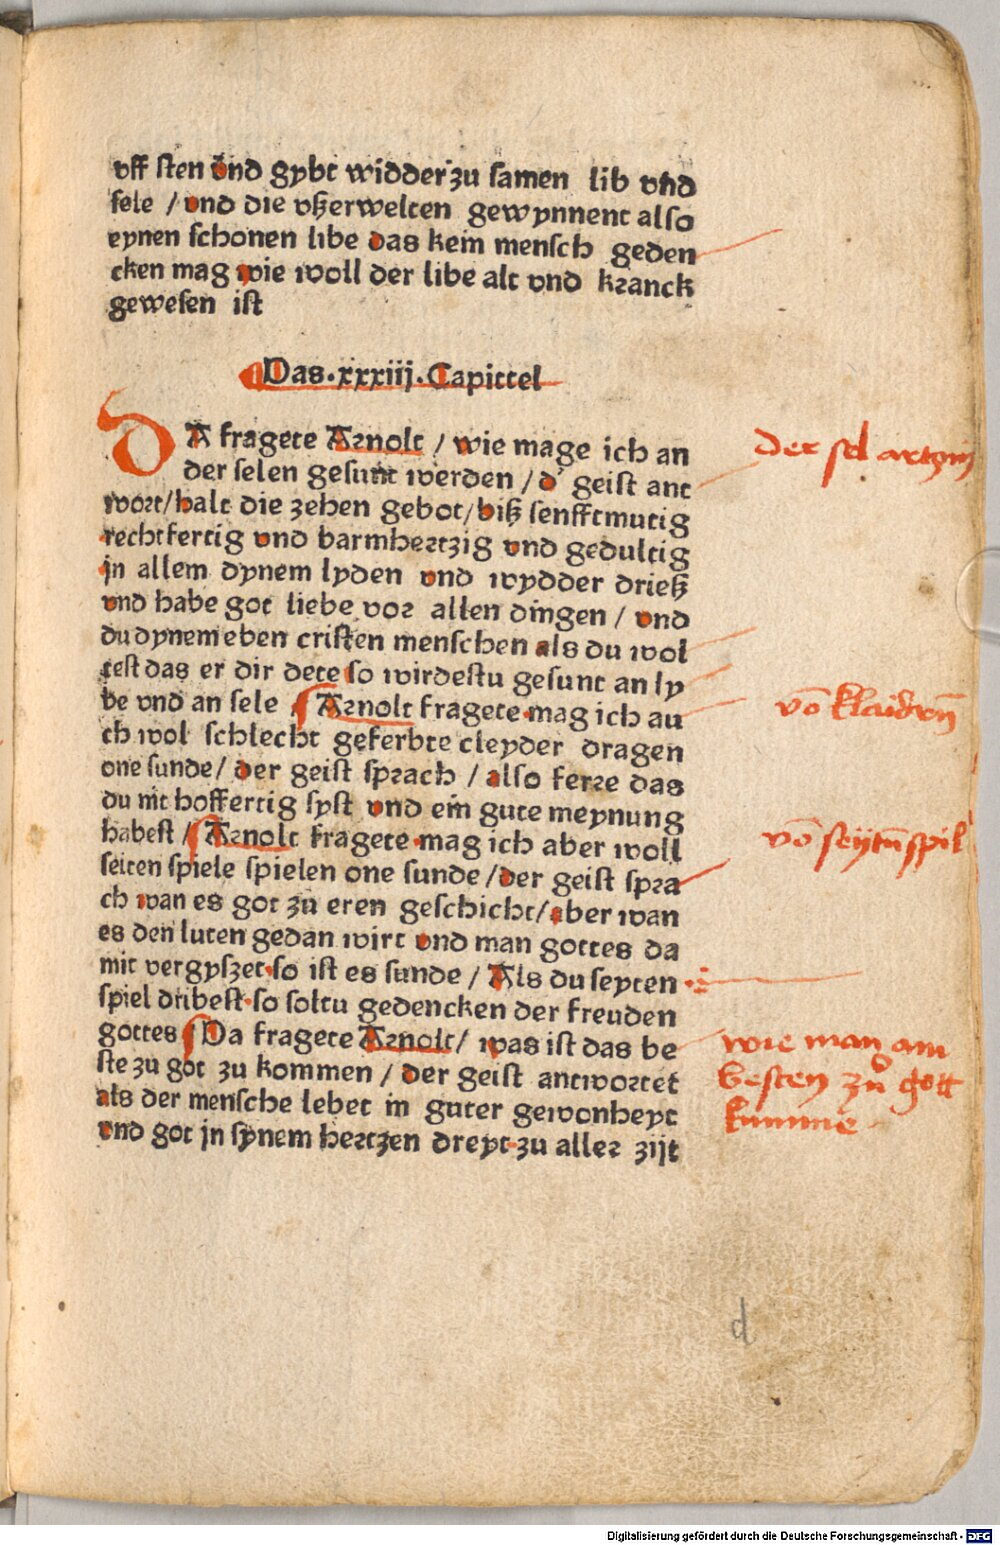 vff sten vnd gybt widder zu samen lib vnd
sele / vnd die vßerwelten gewynnent also
eynen schonen libe das kein mensch geden
cken mag wie woll der libe alt vnd kranck
gewesen ist
Das .xxxiij. Capittel
DA fragete Arnolt / wie mage ich an
der selen gesunt werden / d' geist ant
wort / halt die zehen gebot / biß senfftmutig
rechtfertig vnd barmhertzig vnd gedultig
jn allem dynem lyden vnd wydder drieß
vnd habe got liebe vor allen dingen / vnd
du dynem eben cristen menschen als du wol
test das er dir dete so wirdestu gesunt an ly
be vnd an sele Arnolt fragete mag ich au
ch wol schlecht geferbte cleyder dragen
one sunde / der geist sprach / also ferre das
du nit hoffertig syst vnd ein gute meynung
habest / Arnolt fragete mag ich aber woll
seiten spiele spielen one sunde / der geist spra
ch wan es got zu eren geschicht / aber wan
es den luten gedan wirt vnd man gottes da
mit vergyszet so ist es sunde / Als du seyten
spiel dribest so soltu gedencken der freuden
gottes Da fragete Arnolt / was ist das be
ste zu got zu kommen / der geist antwortet
als der mensche lebet in guter gewonheyt
vnd got jn synem hertzen dreyt zu aller zijt
der sel artzny
vō klaidern
vō seytn̄ spil
wie man am
besten zů gott
kumme
d
Digitalisierung gefördert durch die Deutsche Forschungsgemeinschaft - DFG